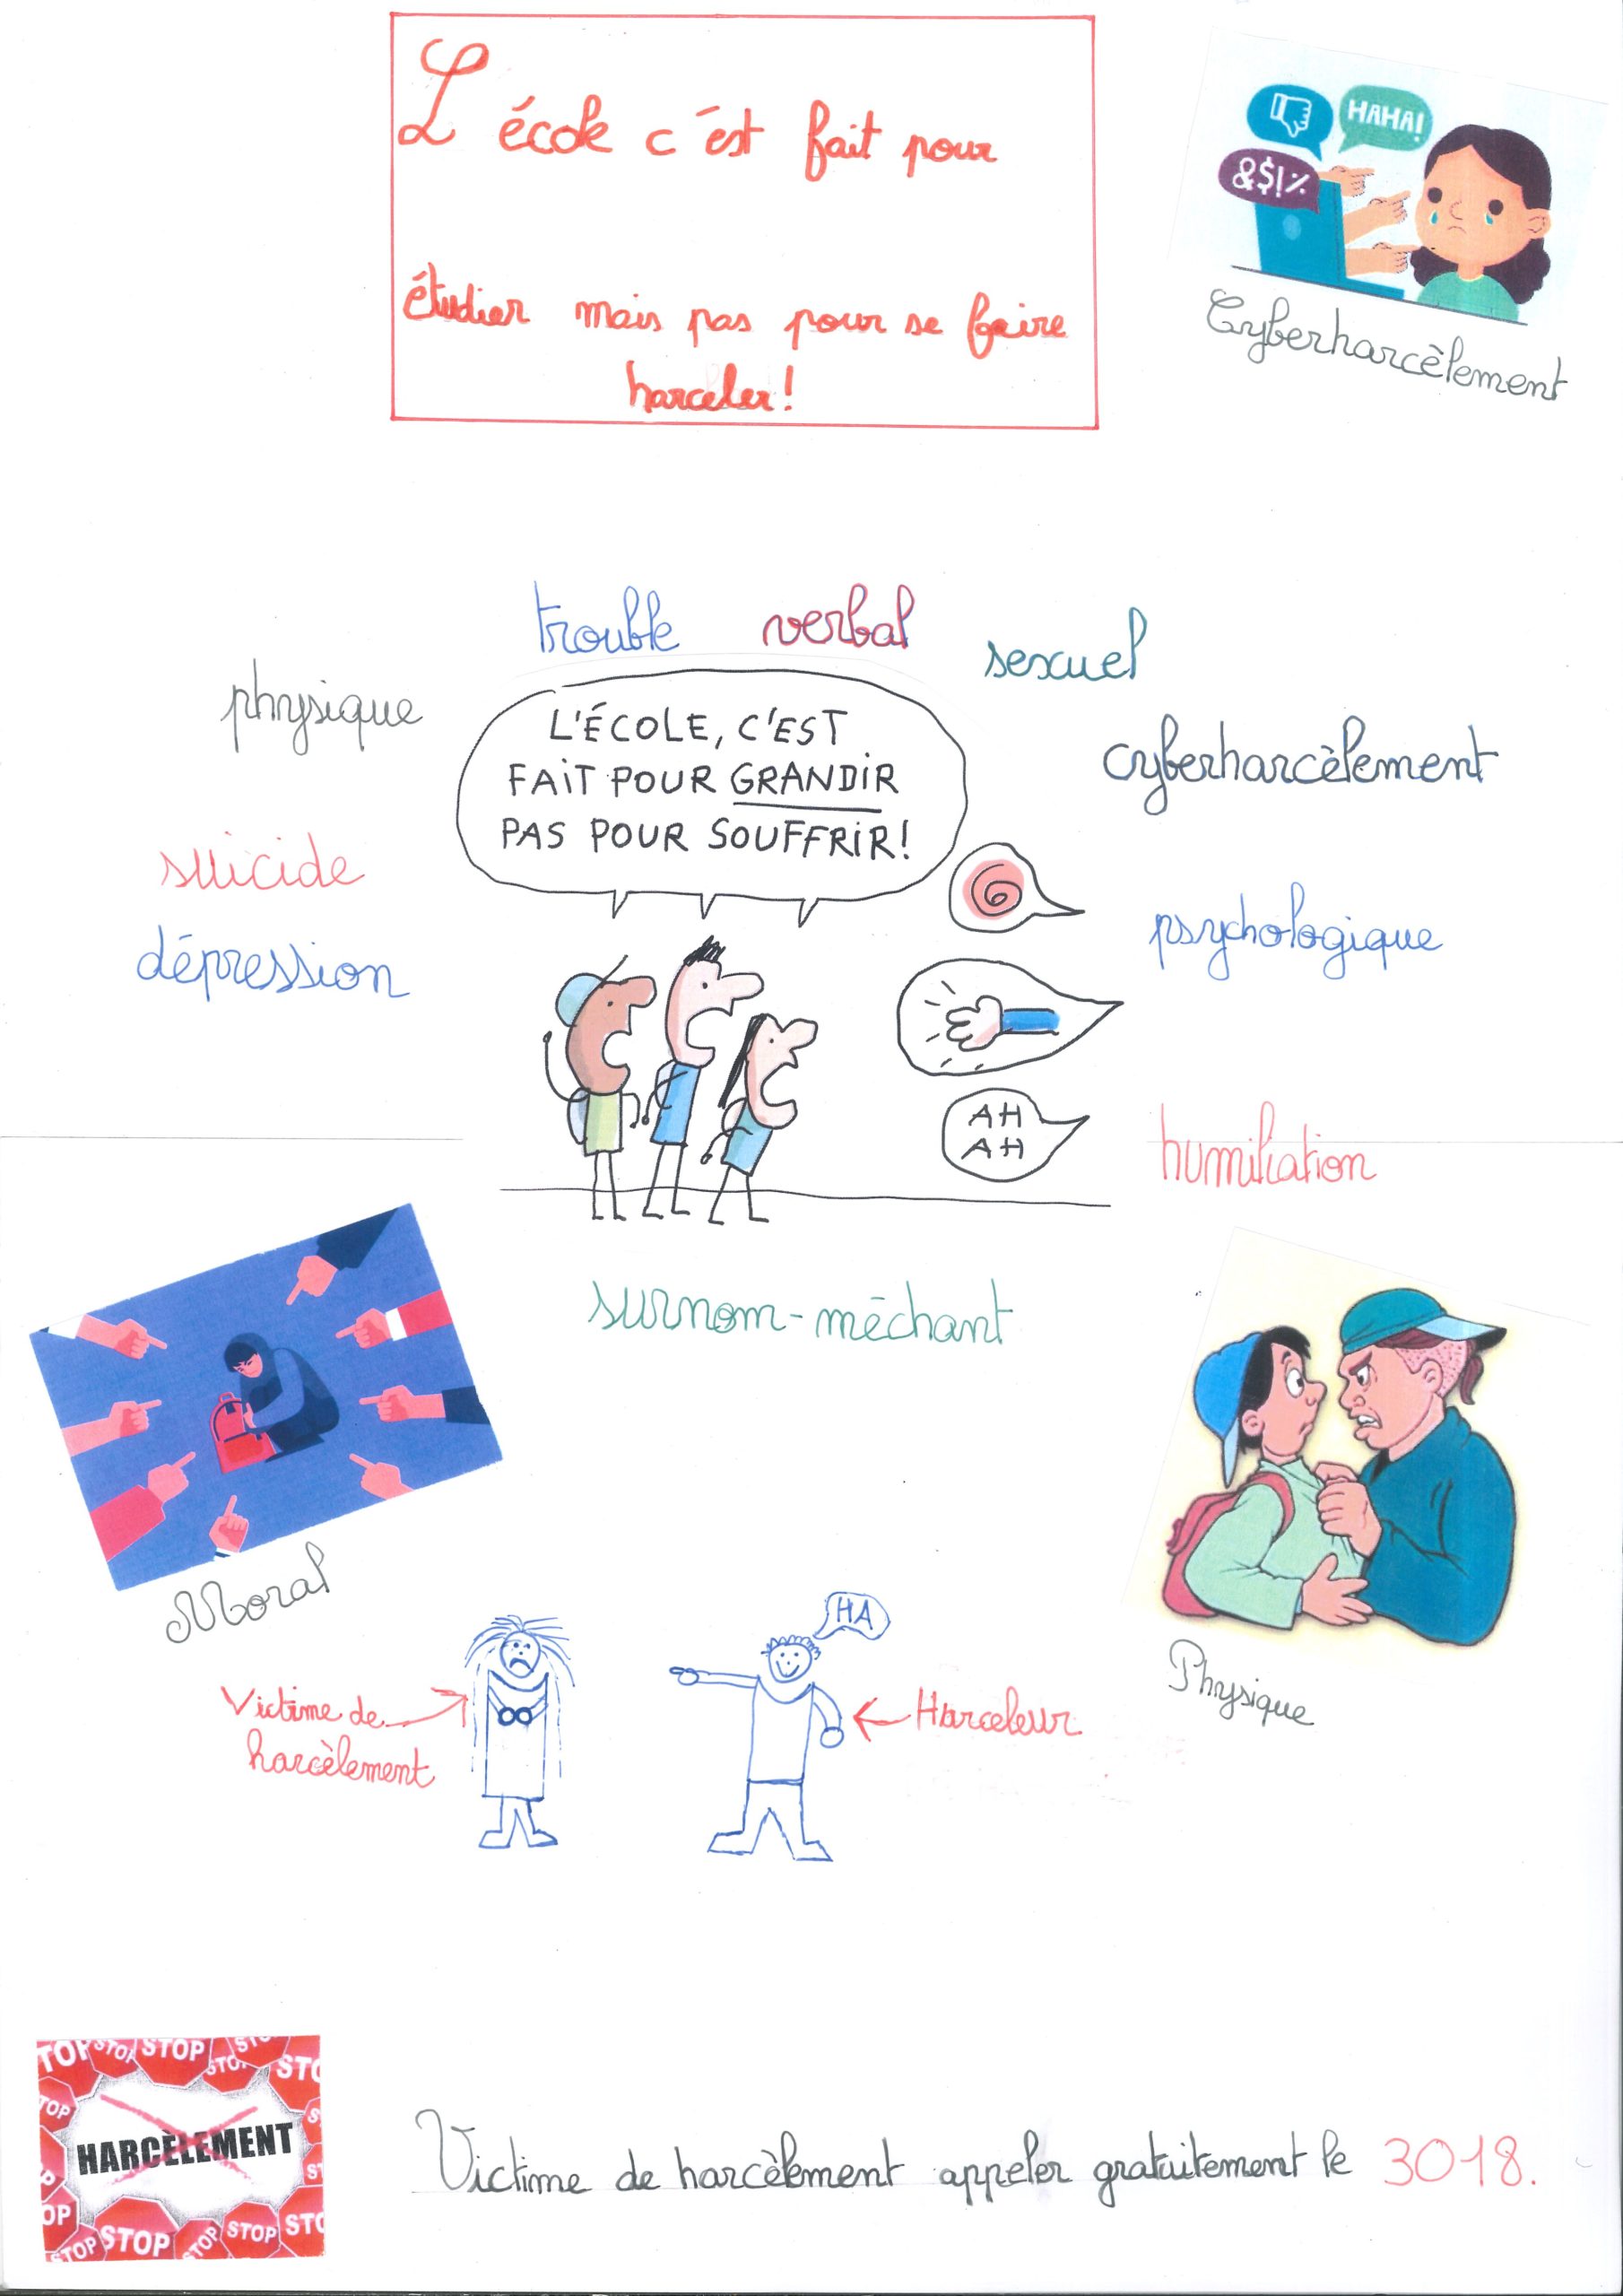 L'école c'est fait pour
étudier mais pas pour se faire
harceler!
HAHA!
&$!%
Cyberharcèlement
trouble
verbal
sexuel
physique
cyberharcèlement
L'ÉCOLE, C'EST
FAIT POUR GRANDIR
PAS POUR SOUFFRIR!
suicide
psychologique
dépression
AH
AH
humiliation
surnom-méchant
Moral
Physique
HA
Victime de
harcèlement
Harceleur
STOP STOP STOP STOP STOP STOP
HARCÈLEMENT
STOP STOP STOP STOP STOP
Victime de harcèlement appeler gratuitement le 3018.